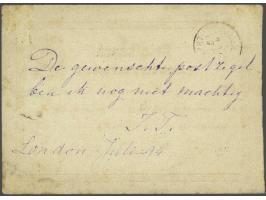 De gewenscht postzegel
ben ik nog niet machtig
J. T.
London Juli 14